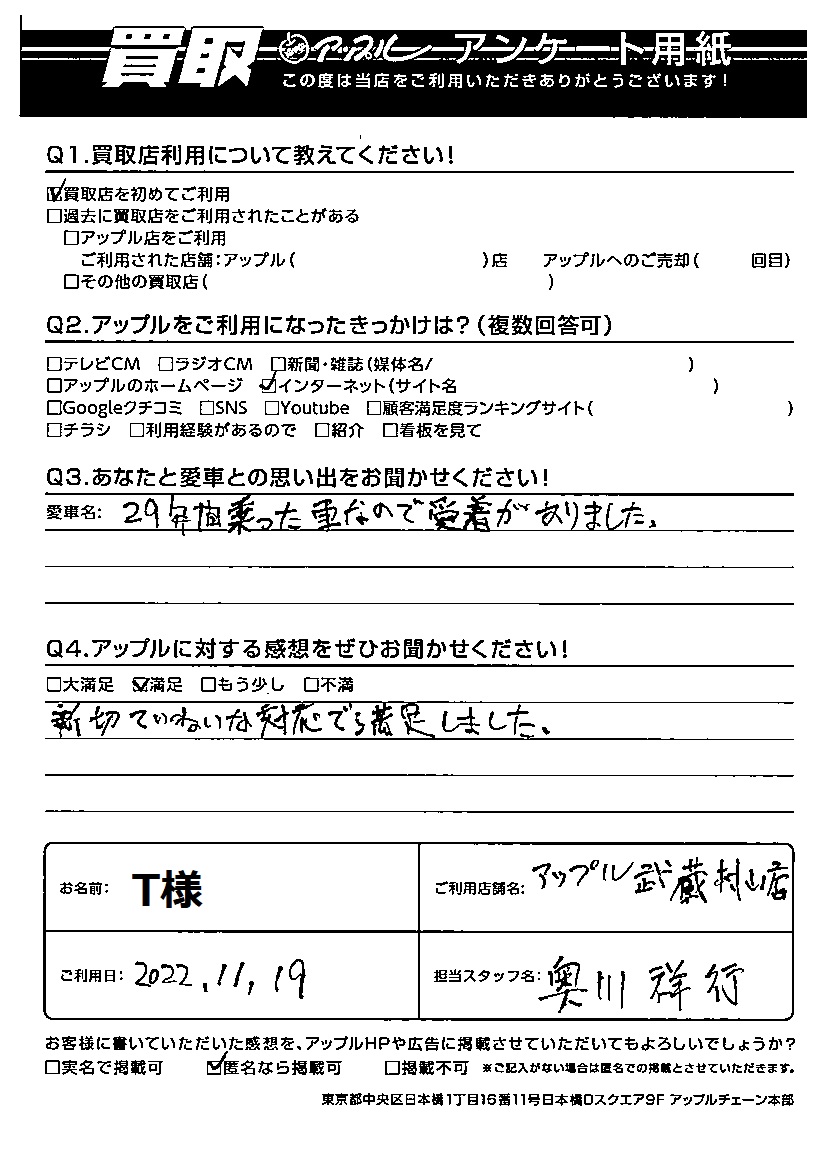 買取 アップル アンケート用紙
この度は当店をご利用いただきありがとうございます!
Q1.買取店利用について教えてください!
☑買取店を初めてご利用
□過去に買取店をご利用されたことがある
□アップル店をご利用
ご利用された店舗:アップル( )店 アップルへのご売却( 回目)
□その他の買取店( )
Q2.アップルをご利用になったきっかけは?(複数回答可)
□テレビCM □ラジオCM □新聞・雑誌(媒体名/ )
□アップルのホームページ ☑インターネット(サイト名 )
□Googleクチコミ □SNS □Youtube □顧客満足度ランキングサイト( )
□チラシ □利用経験があるので □紹介 □看板を見て
Q3.あなたと愛車との思い出をお聞かせください!
愛車名: 29年間乗った車なので愛着がありました。
Q4.アップルに対する感想をぜひお聞かせください!
□大満足 ☑満足 □もう少し □不満
親切ていねいな対応でら満足しました。
お名前: T様 ご利用店舗名: アップル武蔵村山店
ご利用日: 2022.11.19 担当スタッフ名: 奥川 祥行
お客様に書いていただいた感想を、アップルHPや広告に掲載させていただいてもよろしいでしょうか?
□実名で掲載可 ☑匿名なら掲載可 □掲載不可 ※ご記入がない場合は匿名での掲載とさせていただきます。
東京都中央区日本橋1丁目16番11号日本橋Dスクエア9F アップルチェーン本部